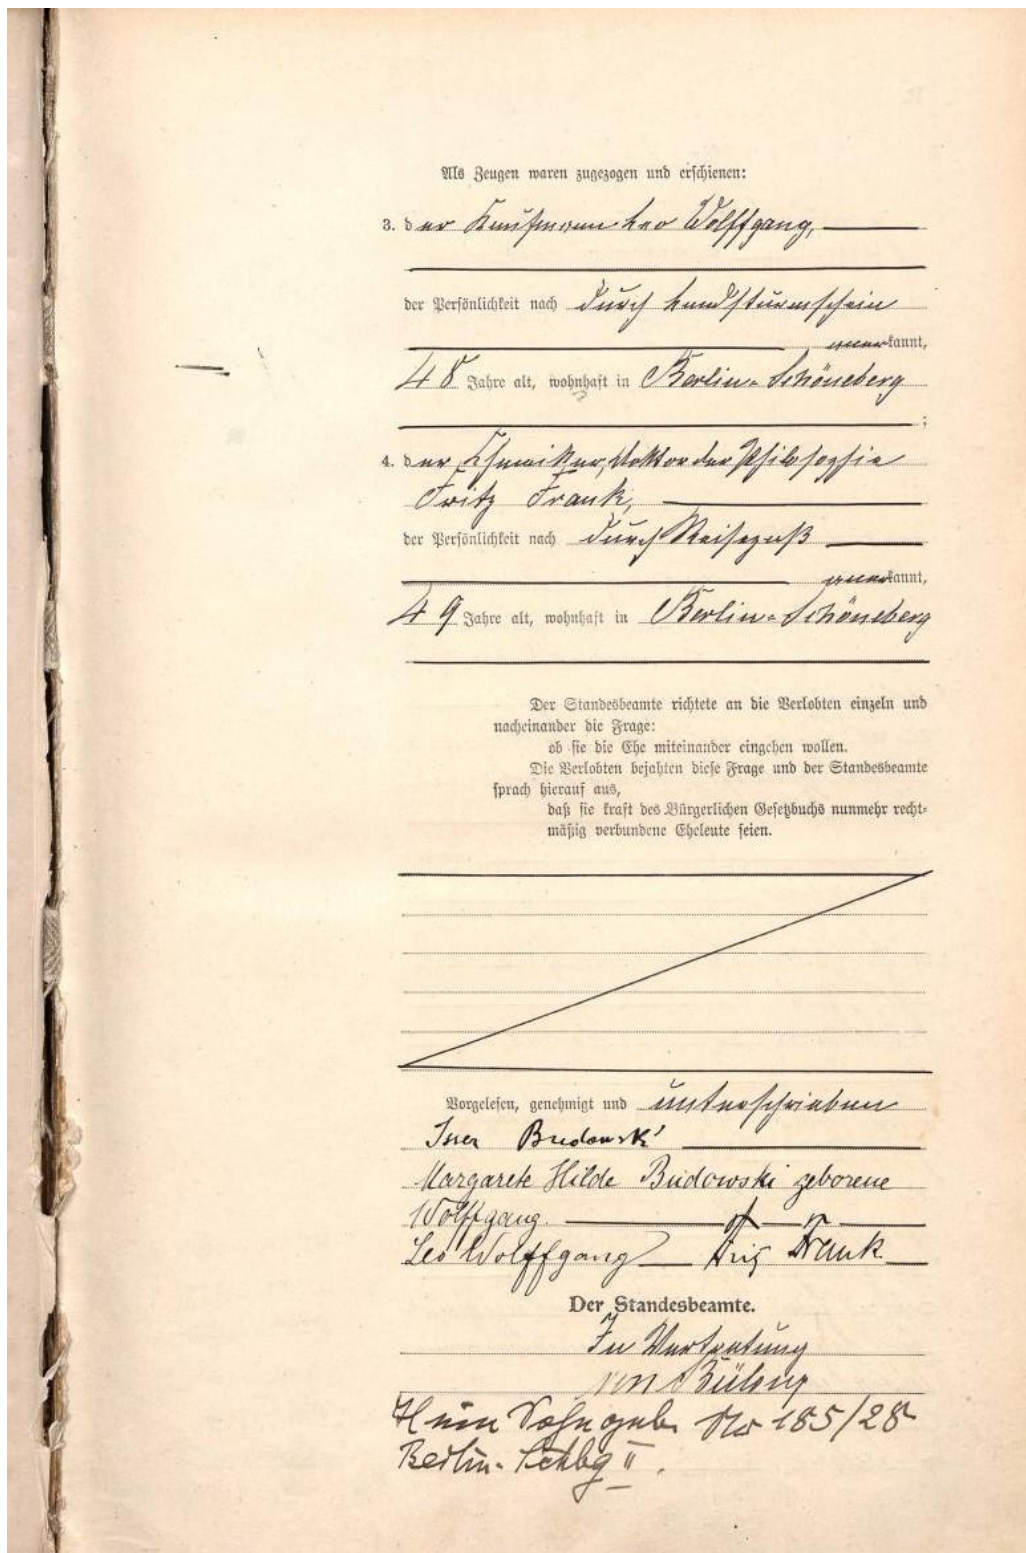 Als Zeugen waren zugezogen und erschienen:
3. der Kaufmann Leo Wolffgang,
der Persönlichkeit nach durch Landsturmschein
anerkannt,
48 Jahre alt, wohnhaft in Berlin-Schöneberg
;
4. der Chemiker, Doktor der Philosophie
Fritz Frank,
der Persönlichkeit nach durch Reisepaß
anerkannt,
49 Jahre alt, wohnhaft in Berlin-Schöneberg
Der Standesbeamte richtete an die Verlobten einzeln und
nacheinander die Frage:
ob sie die Ehe miteinander eingehen wollen.
Die Verlobten bejahten diese Frage und der Standesbeamte
sprach hierauf aus,
daß sie kraft des Bürgerlichen Gesetzbuchs nunmehr recht-
mäßig verbundene Eheleute seien.
Vorgelesen, genehmigt und unterschrieben
Isser Budowski
Margarete Hilde Budowski geborene
Wolffgang.
Leo Wolffgang Fritz Frank
Der Standesbeamte.
In Vertretung
von
Sohn geb. No 185/28
Berlin-Schbg II.